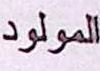 المولود